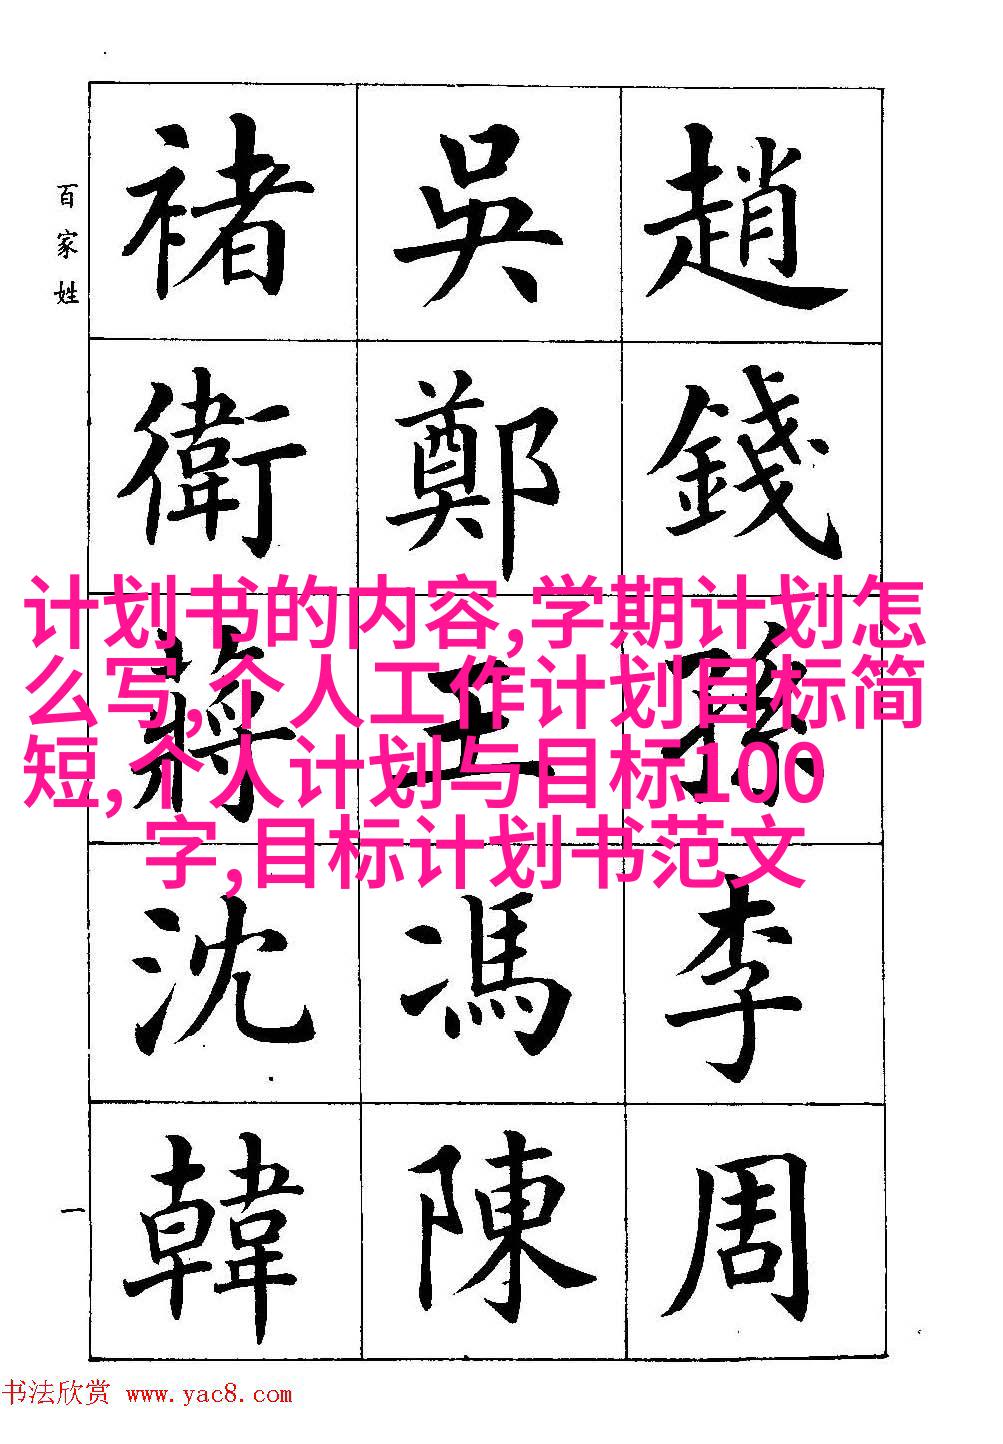 百家姓
趙
錢
孫
李
周
吳
鄭
王
馮
陳
褚
衛
蔣
沈
韓
一
计划书的内容,学期计划怎
么写,个人工作计划目标简
短,个人计划与目标100
字,目标计划书范文
书法欣赏 www.yac8.com